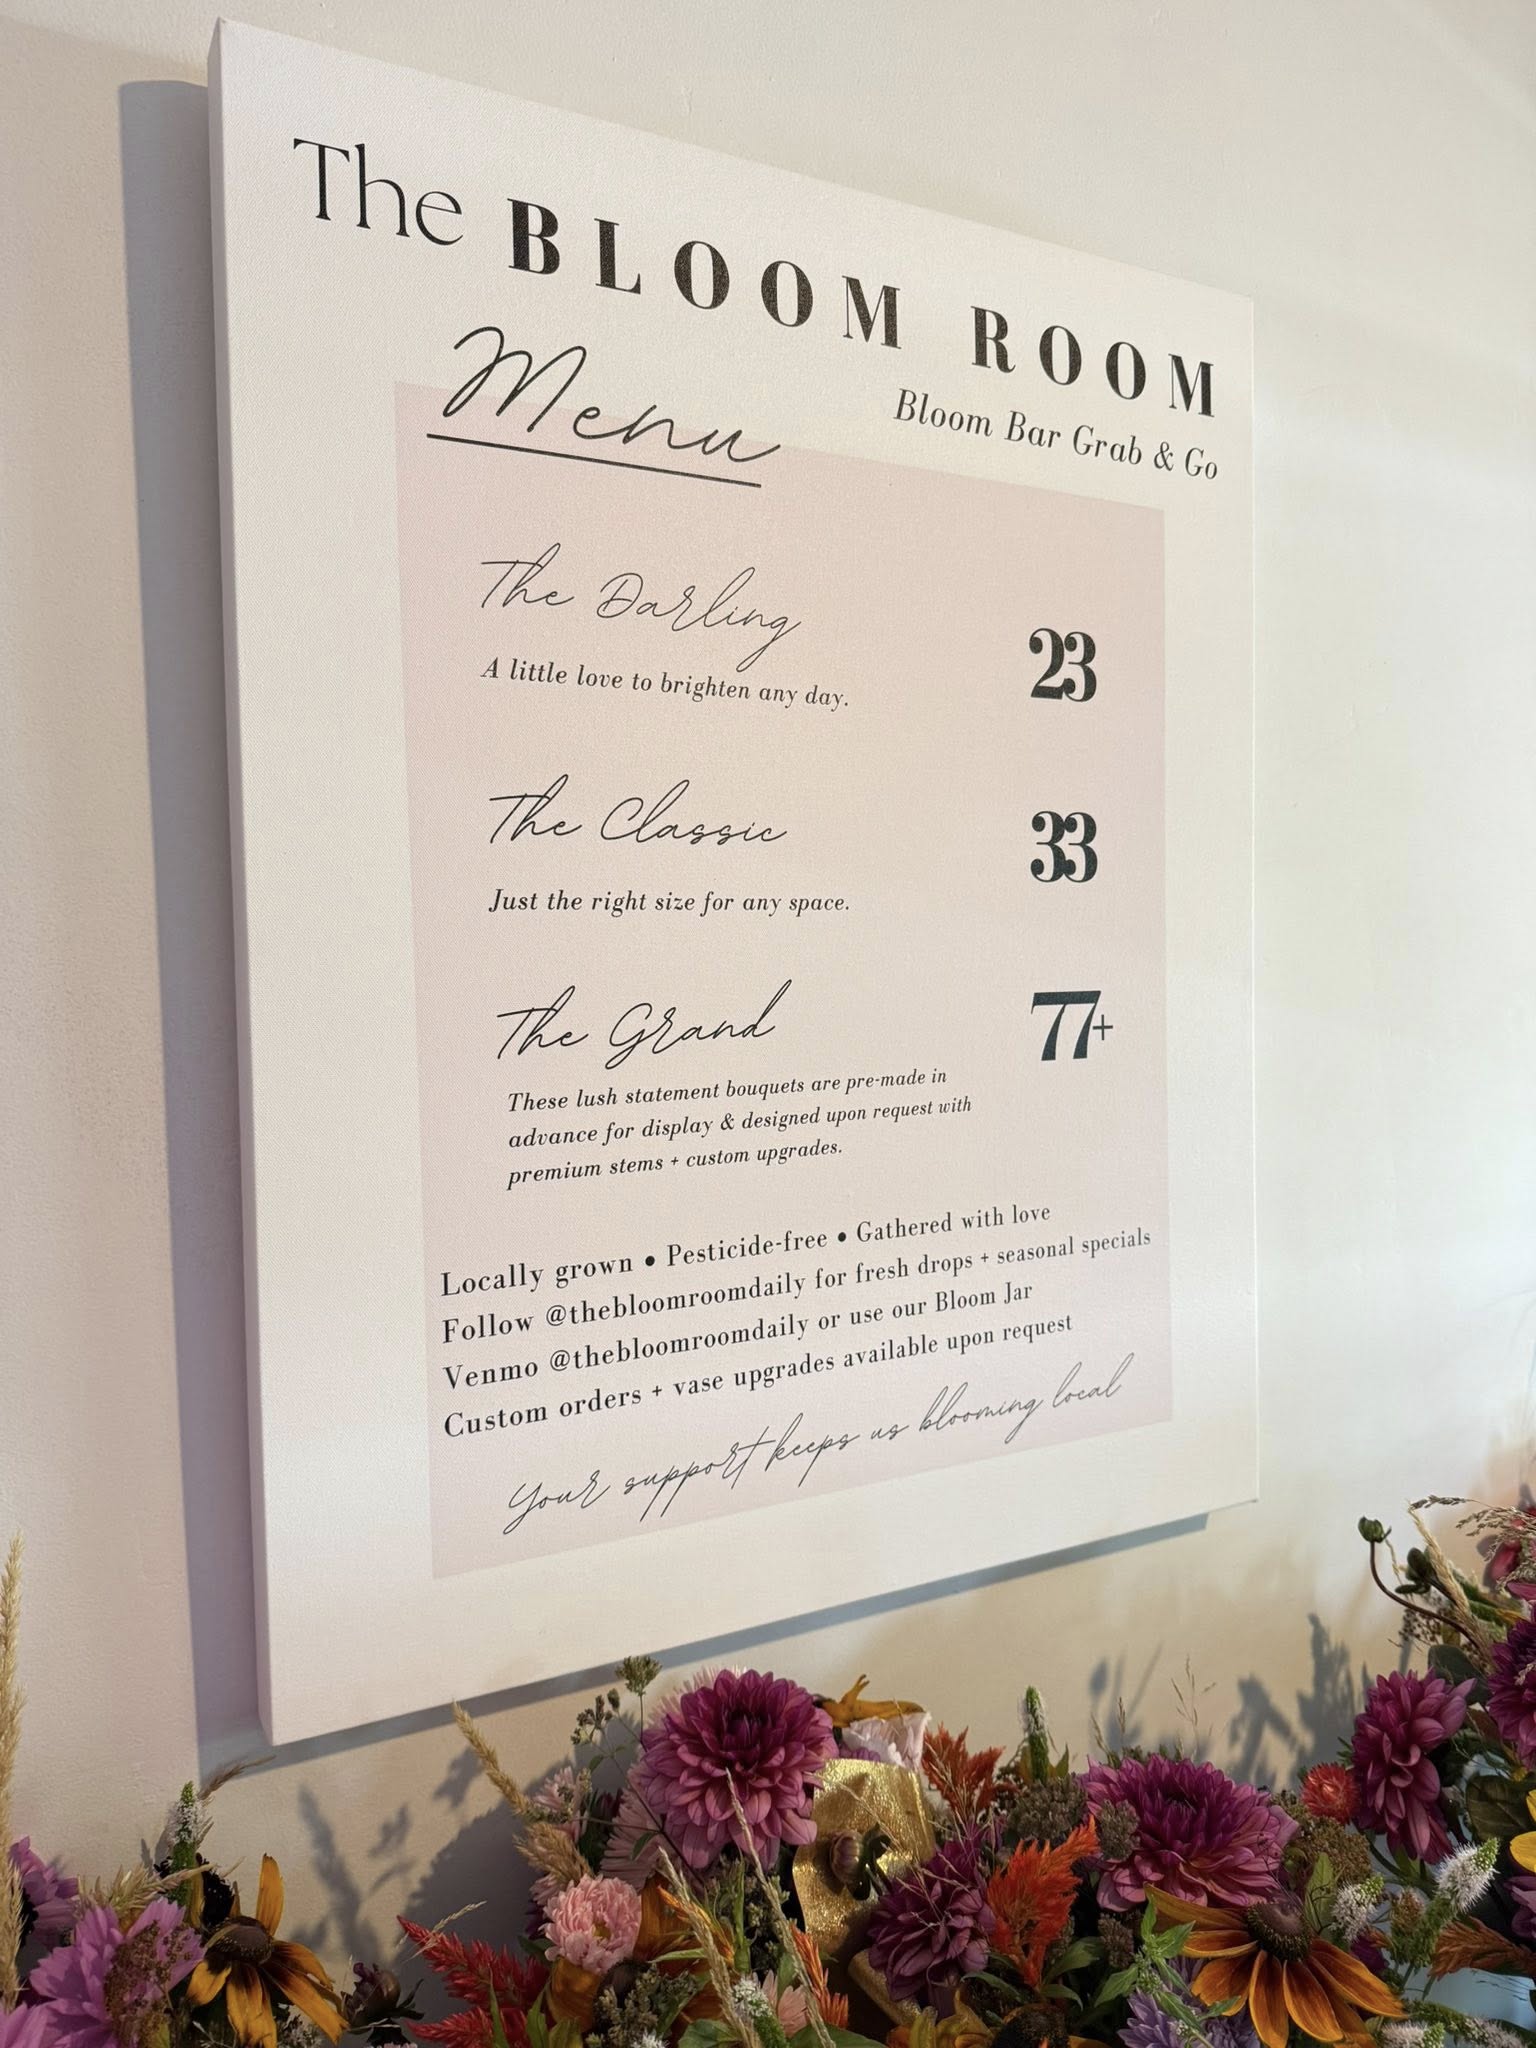 The BLOOM ROOM
Bloom Bar Grab & Go
Menu
The Darling
23
A little love to brighten any day.
The Classic
33
Just the right size for any space.
The Grand
77+
These lush statement bouquets are pre-made in
advance for display & designed upon request with
premium stems + custom upgrades.
Locally grown • Pesticide-free • Gathered with love
Follow @thebloomroomdaily for fresh drops + seasonal specials
Venmo @thebloomroomdaily or use our Bloom Jar
Custom orders + vase upgrades available upon request
Your support keeps us blooming local